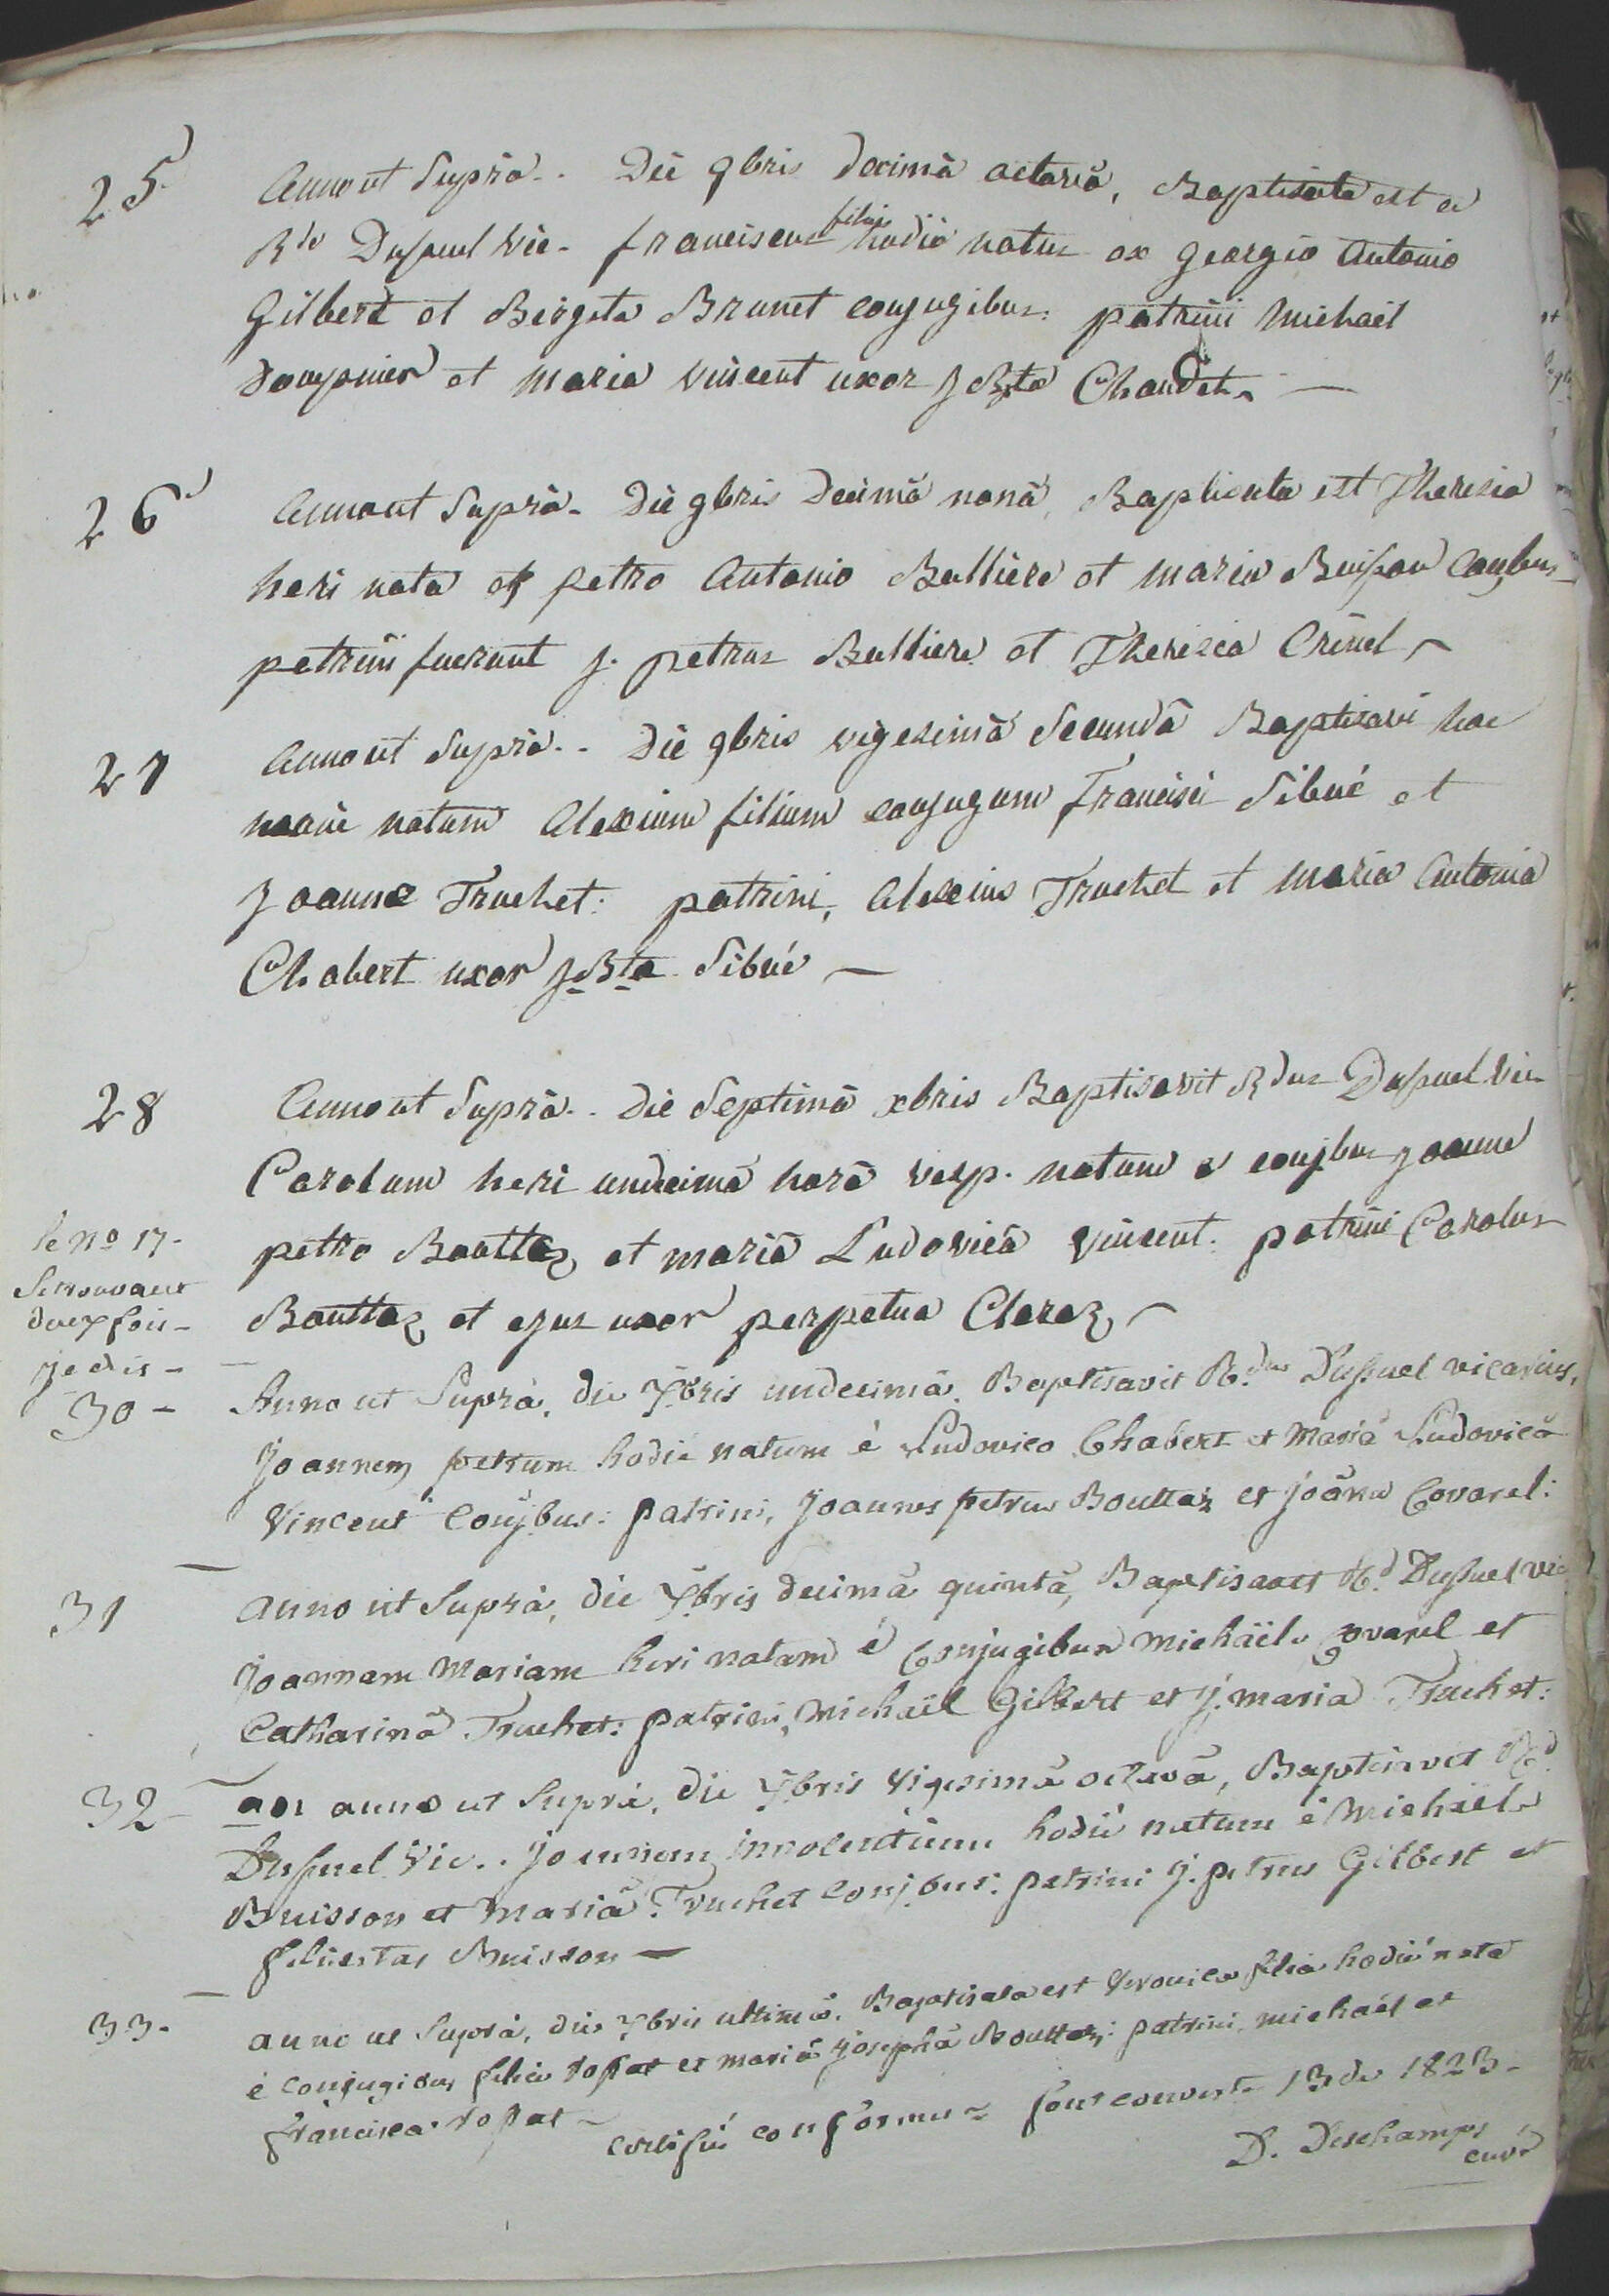 25 Anno ut Suprà.. Die 9bris decimà octavà, Baptisata est a
Rdo Dussuel Vic. franciscus filius hodiè natus ex georgio Antonio
Gilbert et Birgita Brunet conjugibus: patrini Michaël
et Maria Vincent uxor J Bta Chaudet. —
26 Anno ut Suprà. Die 9bris Decimâ nonâ, Baptisata est Theresia
heri nata ex petro Antonio Balliere et maria Buisson Conjbus
patrini fuerunt J. petrus Balliere et Theresia Crinel
27 Anno ut Suprà.. Die 9bris vigesimâ Secundâ Baptisavi hac
nocte natum Alexium filium conjugum francisci Sibué et
Joannæ Truchet: patrini, Alexius Truchet et Maria Antonia
Chabert uxor J Bta Sibué —
28 Anno ut Suprà.. die Septimâ xbris Baptisavit Rdus Dussuel Vic.
Carolum heri undecimâ horâ vesp. natum e conjbus joanne
petro Bouttaz et mariâ Ludovicâ Vincent. patrini Carolus
Bouttaz et ejus uxor perpetua Claraz
le no 17.
Se trouvant
deux fois
je dis -
30 - Anno ut Suprà, die Xbris undecimâ, Baptisavit Rdus Dussuel vicarius,
Joannem petrum hodiè natum è Ludovico Chabert et Mariâ Ludovicâ
Vincent Conjbus: patrini, Joannes petrus Bouttaz et joãna Covarel:
31 anno ut Suprà, die Xbris decimâ quintâ, Baptisavit Rd Dussuel vic
Joannam Mariam heri natam è Conjugibus Michaële Covarel et
Catharinâ Truchet: patrini, Michaël Gilbert et J. maria Truchet:
32 - an anno ut Suprà, die Xbris Vigesimâ octavâ, Baptisavit Rd
Dussuel Vic.. Joannem innocentium hodiè natum è Michaële
Buisson et Mariâ Truchet Conjbus: patrini J. petrus Gilbert et
felicitas Buisson —
33. anno ut Suprà, die Xbris ultimâ, Baptisata est Veronica filia hodiè nata
è Conjugibus felice et mariâ Josephâ Bouttaz: patrini, michaël et
francisca
certifié conforme = 13 de 1823.
D. Deschamps
curé